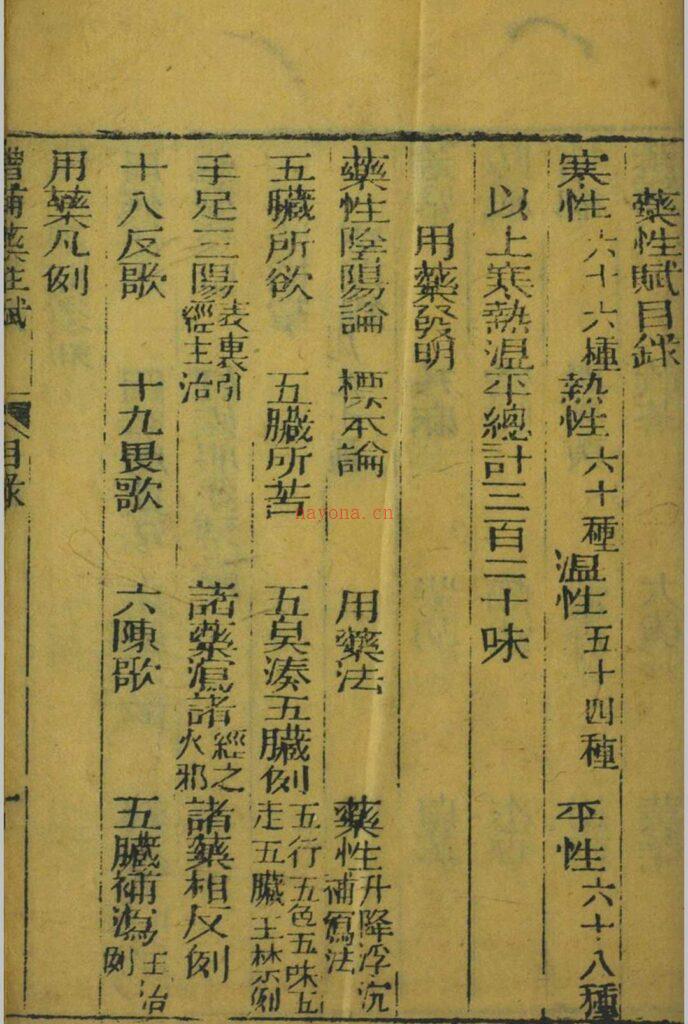 藥性賦目錄
寒性六十六種 熱性六十種 溫性五十四種 平性六十八種
以上寒熱溫平總計三百二十味
用藥發明
藥性陰陽論 標本論 用藥法 藥性升降浮沉補瀉法
五臟所欲 五臟所苦 五臭湊五臟例 五行五色五味五走五臟主禁例
手足三陽表裏引經主治 諸藥瀉諸經之火邪 諸藥相反例
十八反歌 十九畏歌 六陳歌 五臟補瀉主治例
用藥凡例
增補藥性賦 目錄 一
nayona.cn